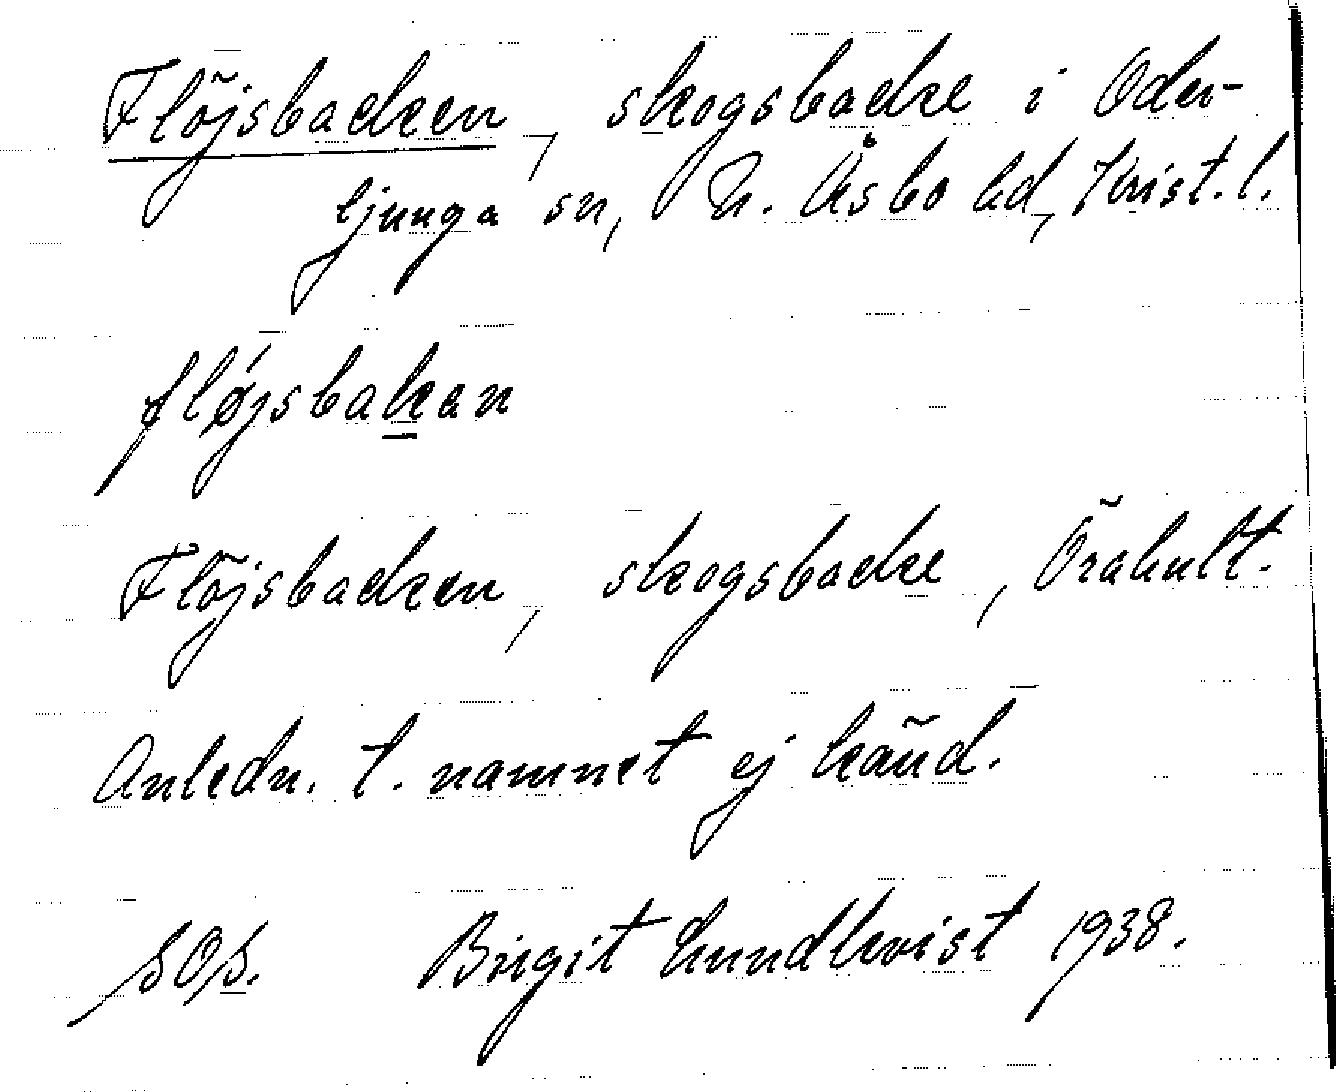 Flöjsbacken, skogsbacke i Oder-
ljunga sn, N. Åsbo hd, Krist. l.
flǿjsbakan
Flöjsbacken, skogsbacke, Örahult.
Anledn. t. namnet ej känd.
SOS. Birgit Lundkvist 1938.